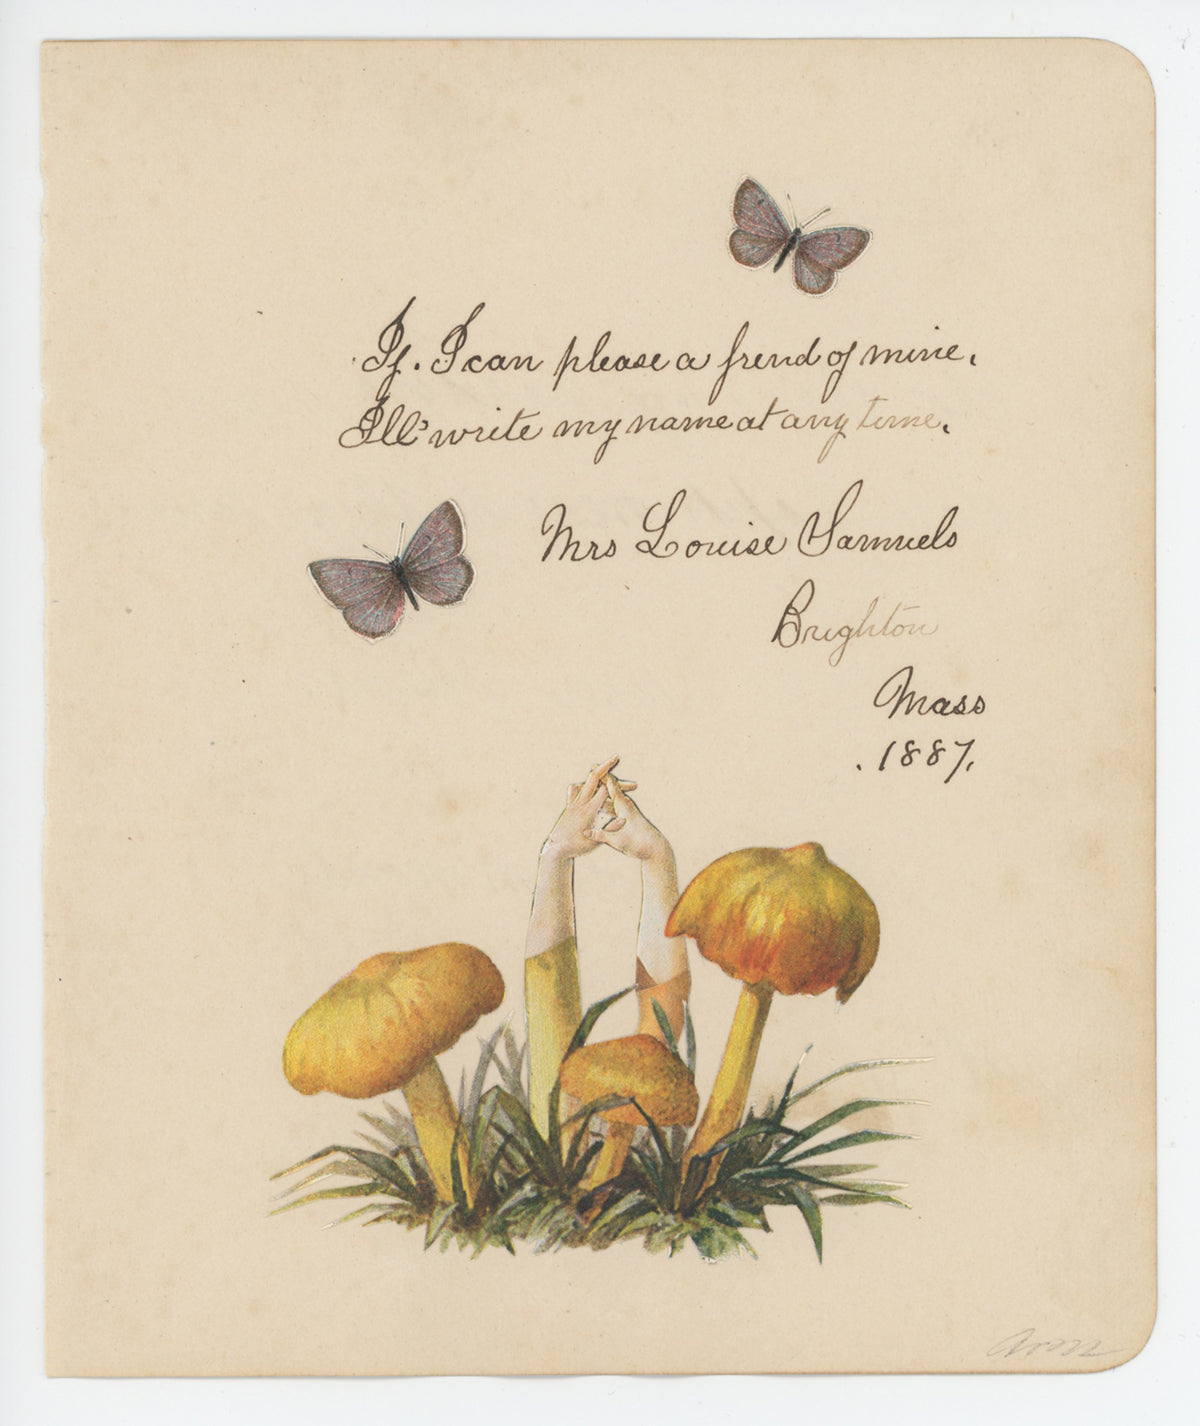 If. I can please a frend of mine.
Ill' write my name at any time.
Mrs Louise Samuels
Brighton
Mass
. 1887.